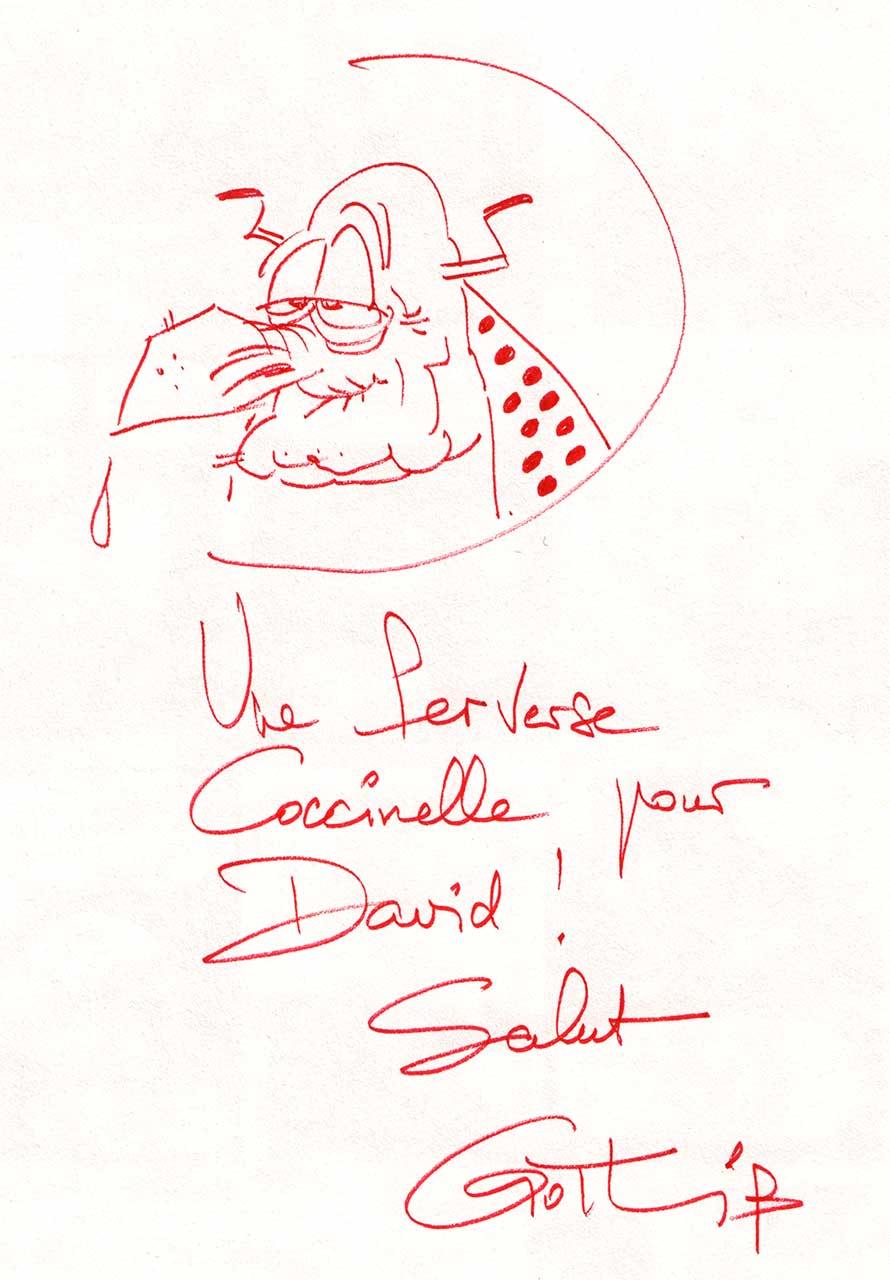 Une perverse
Coccinelle pour
David !
Salut
Gotlib